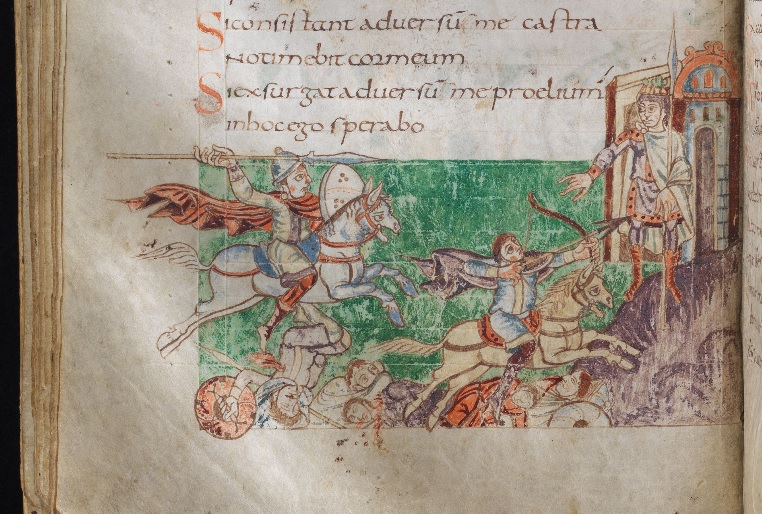 Si consistant adversũ me castra
Non timebit cor meum
Si exsurgat adversũ me proelium
in hoc ego sperabo